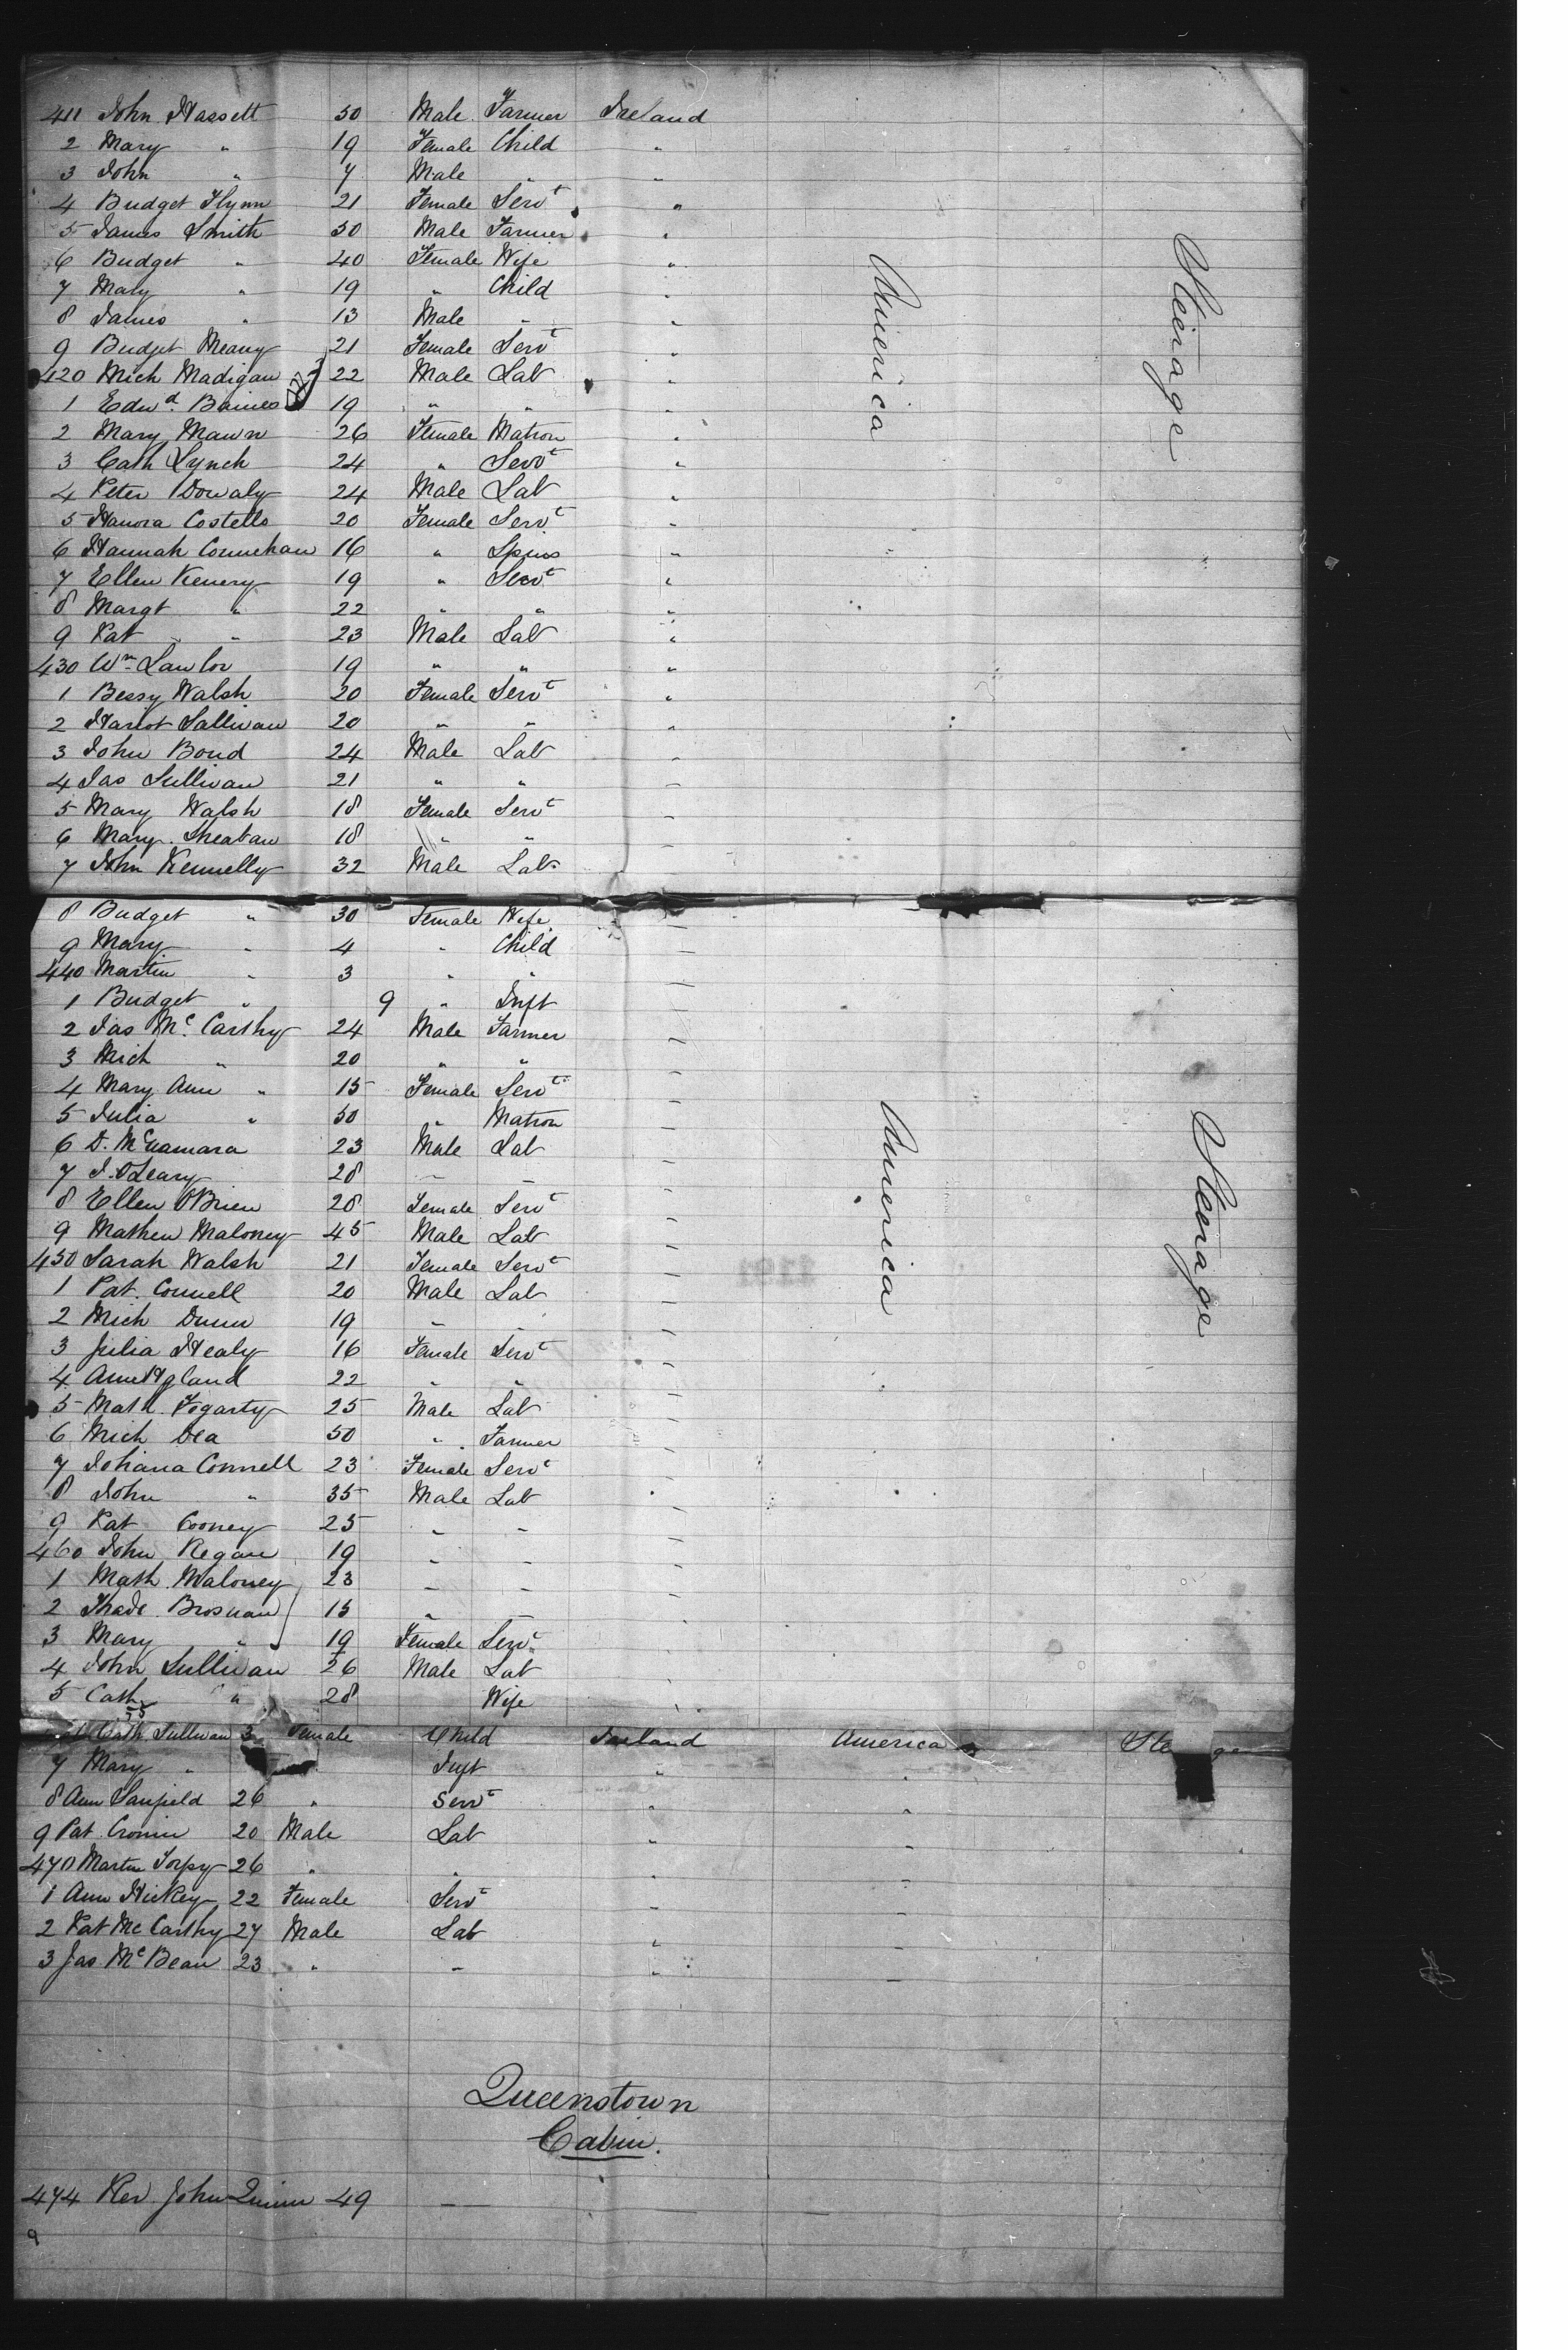 411 John Hassett 50 Male Farmer Ireland
2 Mary " 19 Female Child "
3 John " 7 Male " "
4 Bridget Flynn 21 Female Servt "
5 James Smith 50 Male Farmer "
6 Bridget " 40 Female Wife "
7 Mary " 19 " Child "
8 James " 13 Male " "
9 Bridget Meany 21 Female Servt "
420 Mich Madigan 22 Male Lab "
1 Edwd. Baines 19 " " "
2 Mary Mawn 26 Female Matron "
3 Cath Lynch 24 " Servt "
4 Peter Dowaly 24 Male Lab "
5 Hanora Costello 20 Female Servt "
6 Hannah Connehan 16 " Spins "
7 Ellen Kenery 19 " Servt "
8 Margt " 22 " " "
9 Pat " 23 Male Lab "
430 Wm Lawlor 19 " " "
1 Bessy Walsh 20 Female Servt "
2 Harriot Sullivan 20 " " "
3 John Bond 24 Male Lab "
4 Jas Sullivan 21 " " "
5 Mary Walsh 18 Female Servt "
6 Mary Sheahan 18 " " "
7 John Kennelly 32 Male Lab "
America
Steerage
8 Bridget " 30 Female Wife "
9 Mary " 4 " Child "
440 Martin " 3 " " "
1 Bridget " 9 " Inft "
2 Jas Mc Carthy 24 Male Farmer "
3 Mich " 20 " " "
4 Mary Ann " 15 Female Servt "
5 Julia " 50 " Matron "
6 D. McNamara 23 Male Lab "
7 J. O'Leary 28 " " "
8 Ellen O'Brien 28 Female Servt "
9 Mathew Maloney 45 Male Lab "
450 Sarah Walsh 21 Female Servt "
1 Pat. Connell 20 Male Lab "
2 Mich Dunn 19 " " "
3 Julia Healy 16 Female Servt "
4 Ann Hyland 22 " " "
5 Math. Fogarty 25 Male Lab "
6 Mich Dea 50 " Farmer "
7 Johana Connell 23 Female Servt "
8 John " 35 Male Lab "
9 Pat Cooney 25 " " "
460 John Regan 19 " " "
1 Math. Maloney 23 " " "
2 Thade Brosnan 15 " " "
3 Mary " 19 Female Servt "
4 John Sullivan 26 Male Lab "
5 Cath " 28 Wife "
America
Steerage
Cath Sullivan 3 Female Child Ireland America
7 Mary " Inft " "
8 Ann 26 " Servt " "
9 Pat Cronin 20 Male Lab " "
470 Martin Torpy 26 " " " "
1 Ann Hickey 22 Female Servt " "
2 Pat Mc Carthy 27 Male Lab " "
3 Jas McBean 23 " " " "
Queenstown
Cabin.
474 Rev. John Quinn 49